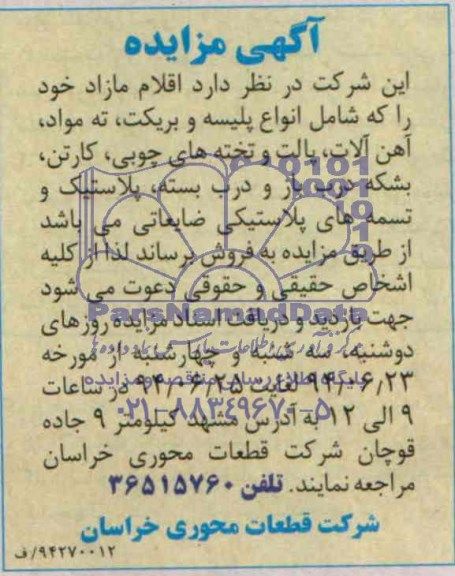 آگهی مزایده
این شرکت در نظر دارد اقلام مازاد خود
را که شامل انواع پلیسه و بریکت، ته مواد،
آهن آلات، پالت و تخته های چوبی، کارتن،
بشکه درب باز و درب بسته، پلاستیک و
تسمه های پلاستیکی ضایعاتی می باشد
از طریق مزایده به فروش برساند لذا از کلیه
اشخاص حقیقی و حقوقی دعوت می شود
جهت بازدید و دریافت اسناد مزایده روزهای
دوشنبه، سه شنبه و چهارشنبه از مورخه
۹۴/۰۶/۲۳ لغایت ۹۴/۰۶/۲۵ در ساعات
۹ الی ۱۲ به آدرس مشهد کیلومتر ۹ جاده
قوچان شرکت قطعات محوری خراسان
مراجعه نمایند. تلفن ۳۶۵۱۵۷۶۰
شرکت قطعات محوری خراسان
۹۴۲۷۰۰۱۲/ف
ParsNamadData
۰۲۱-۸۸۳۴۹۶۷۰-۵